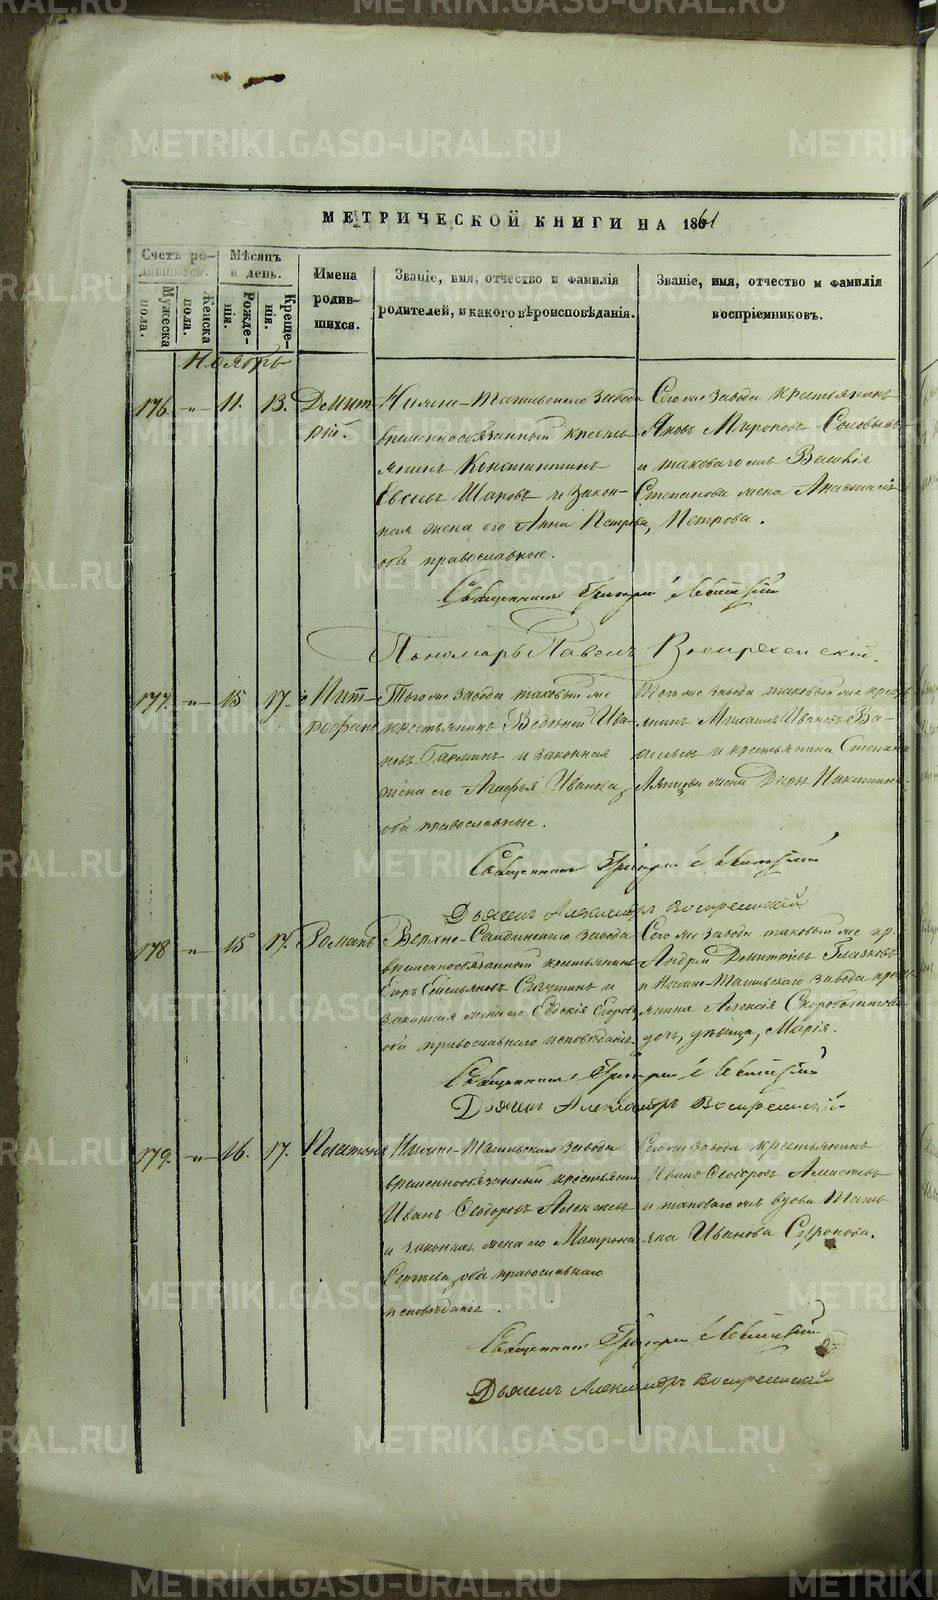 МЕТРИЧЕСКОЙ КНИГИ НА 1861
Счетъ родившихся.
Мужеска пола.
Женска пола.
Мѣсяцъ и день.
Рожденія.
Крещенія.
Имена родившихся.
Званіе, имя, отчество и фамилія родителей, и какого вѣроисповѣданія.
Званіе, имя, отчество и фамилія воспріемниковъ.
Ноябрь
176 „ 11. 13. Дмитрій.
Нижне-Тагильскаго завода
временнообязанный кресть-
янинъ Константинъ
Шаровъ и закон-
ная жена его Анна Петрова,
оба православные.
Сего же завода крестьянинъ
Яковъ Мироновъ Соловьевъ
и таковаго же Василія
Степанова жена Анастасія
Петрова.
Священникъ Григорій
Пономарь Павелъ Воскресенскій.
177. „ 15 17. Митрофанъ
Того же завода таковый же
крестьянинъ Ива-
новъ и законная
жена его Агафья Иванова,
оба православные.
Того же завода таковый же кресть-
янинъ Михаилъ Ивановъ Ва-
и крестьянина Степана
жена Дарья Никитина.
Священникъ Григорій
Дьячекъ Александръ Воскресенскій
178 „ 15 17. Романъ
Верхне-Салдинскаго завода
временнообязанный крестьянинъ
и
законная жена его Евдокія Егорова
оба православнаго исповѣданія.
Сего же завода таковый же кр.
Андрей Дмитріевъ Глазковъ
и Нижне-Тагильскаго завода кресть-
янина Алексія
дочь, дѣвица, Марія.
Священникъ Григорій
Дьячекъ Александръ Воскресенскій
179. „ 16. 17. Платонъ
Нижне-Тагильскаго завода
временнообязанный крестьянинъ
Иванъ Ѳеодоровъ
и законная жена его Матрона
Сергѣева, оба православнаго
исповѣданія.
Сего же завода крестьянинъ
Иванъ Ѳеодоровъ
и таковаго же вдова Тать-
яна Иванова
Священникъ Григорій
Дьячекъ Александръ Воскресенскій
METRIKI.GASO-URAL.RU